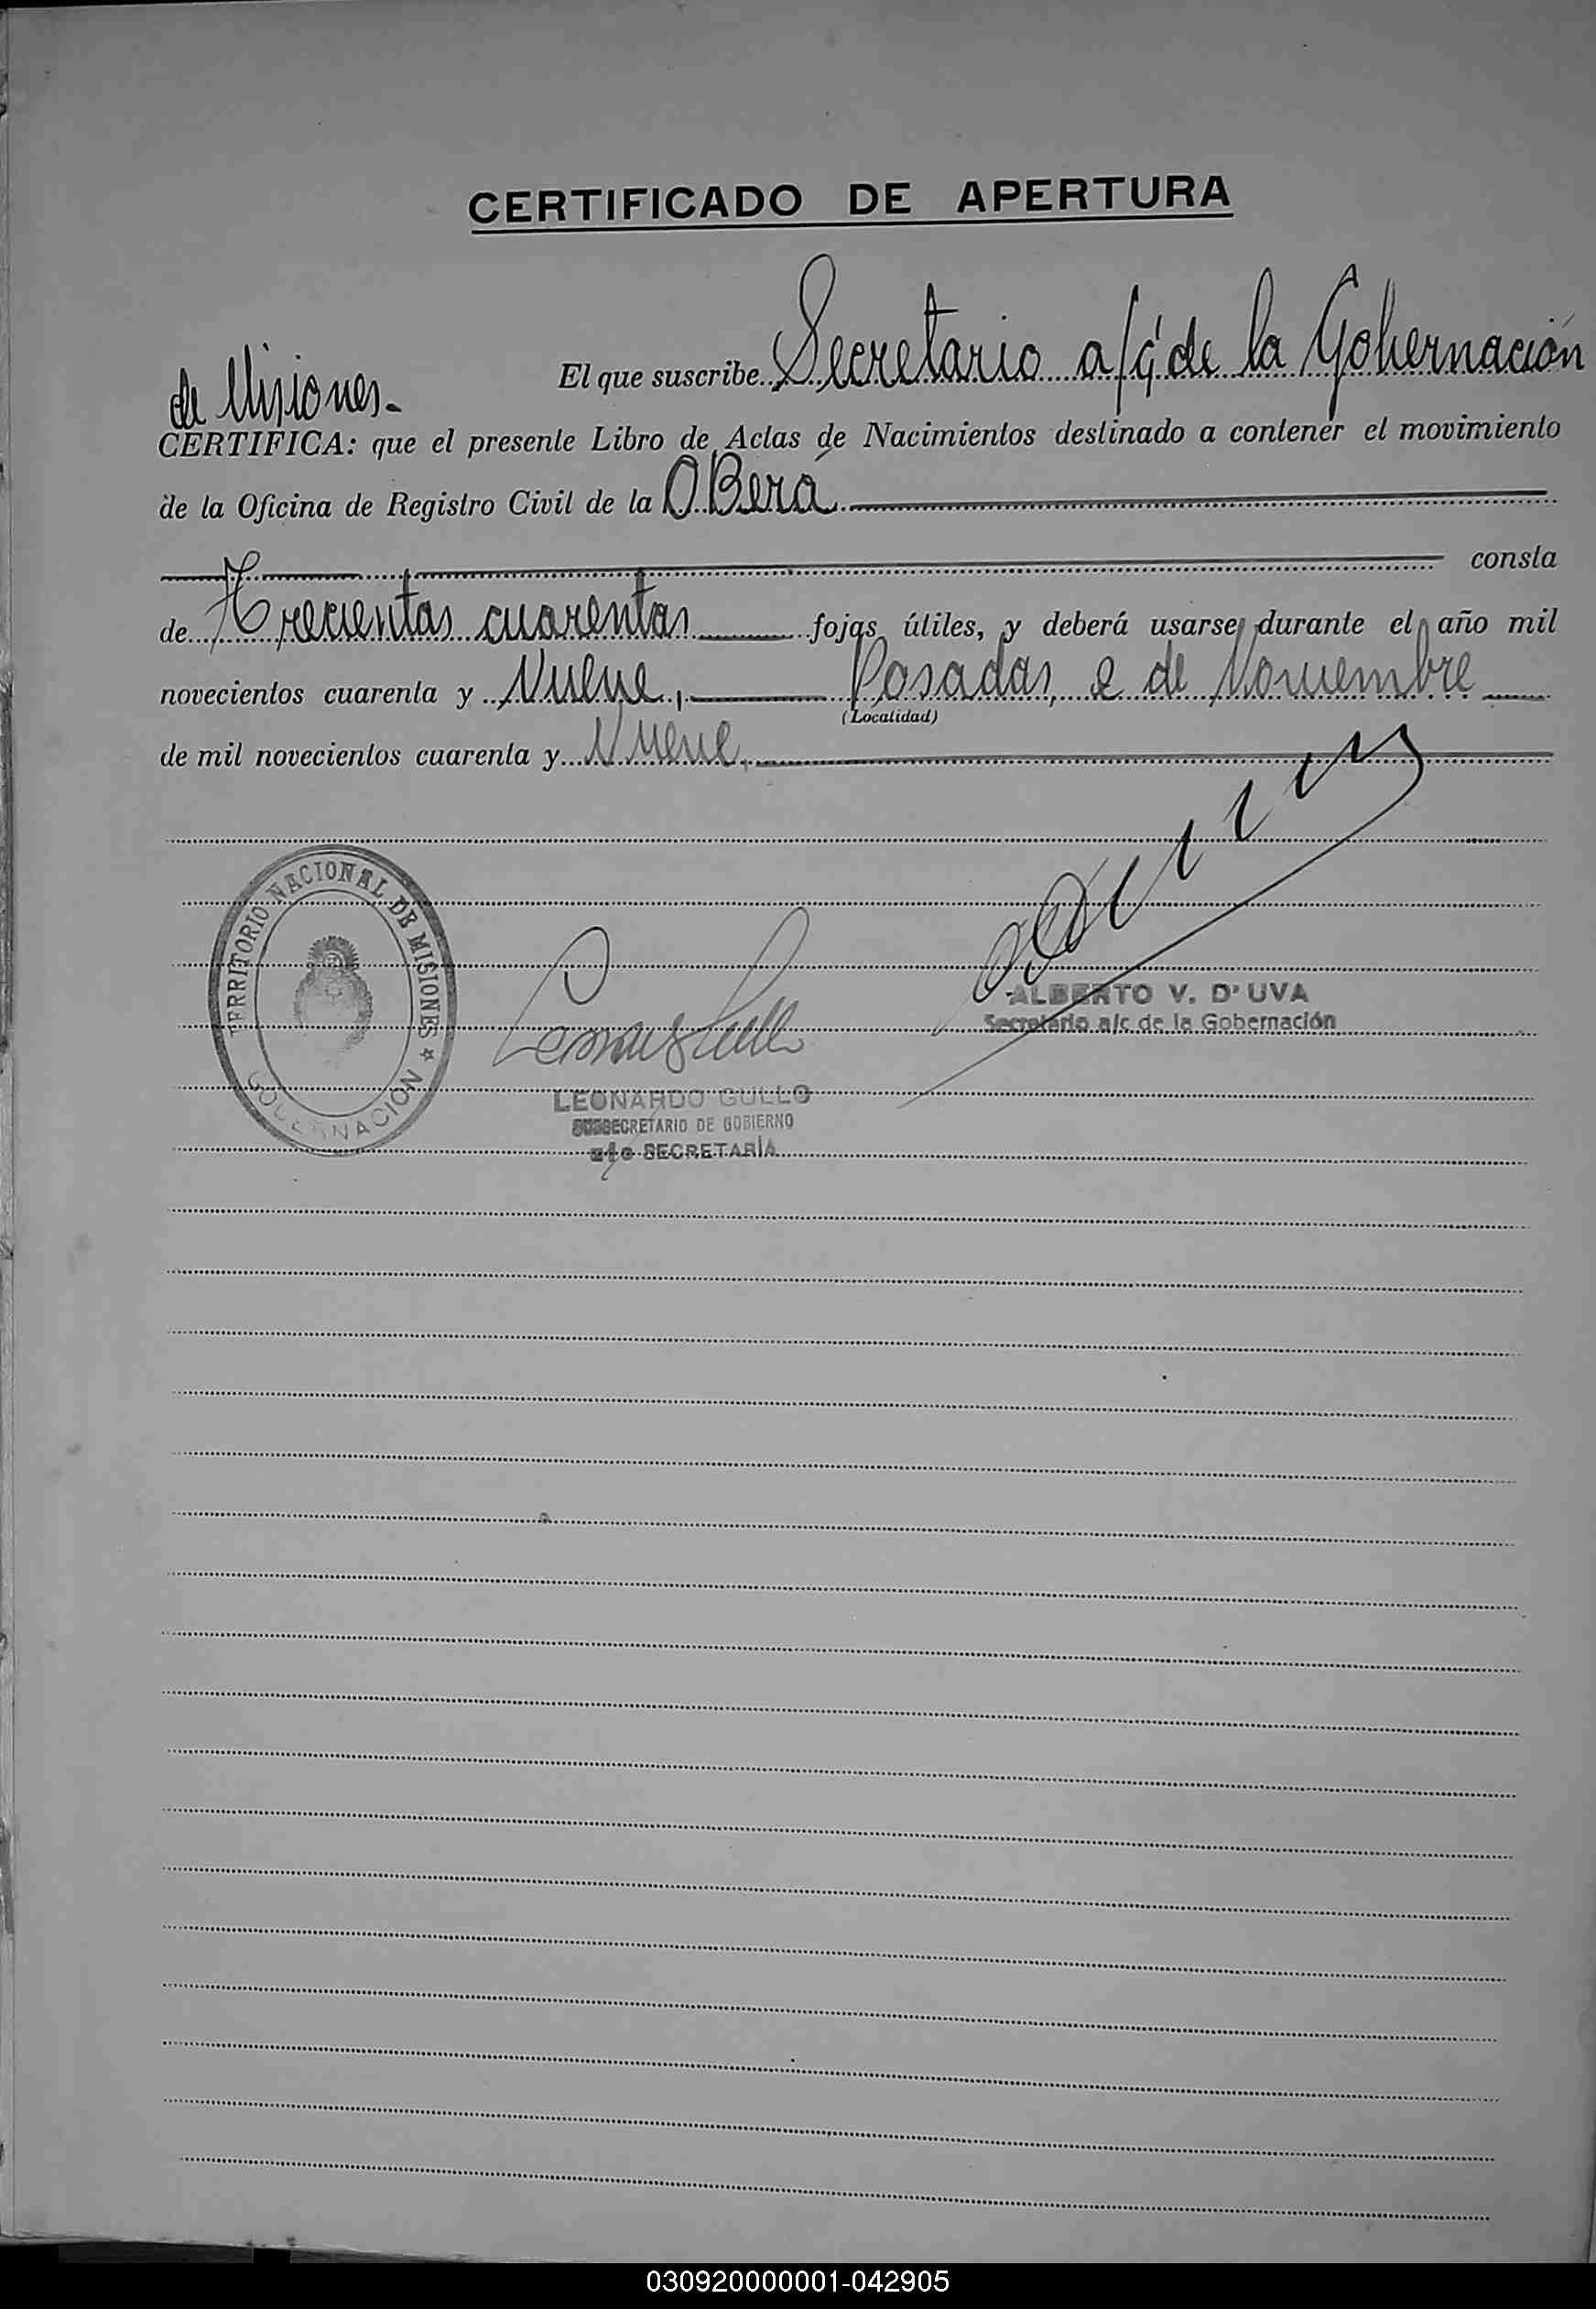 CERTIFICADO DE APERTURA
El que suscribe Secretario a/c de la Gobernación
de Misiones.-
CERTIFICA: que el presente Libro de Actas de Nacimientos destinado a contener el movimiento
de la Oficina de Registro Civil de la OBerá
consta
de Trecientas cuarentas fojas útiles, y deberá usarse durante el año mil
novecientos cuarenta y Nueve, Posadas, 2 de Noviembre
(Localidad)
de mil novecientos cuarenta y Nueve.
TERRITORIO NACIONAL DE MISIONES ★
GOBERNACIÓN
ALBERTO V. D'UVA
Secretario a/c de la Gobernación
LEONARDO GULLO
SUBSECRETARIO DE GOBIERNO
a/c SECRETARÍA
030920000001-042905